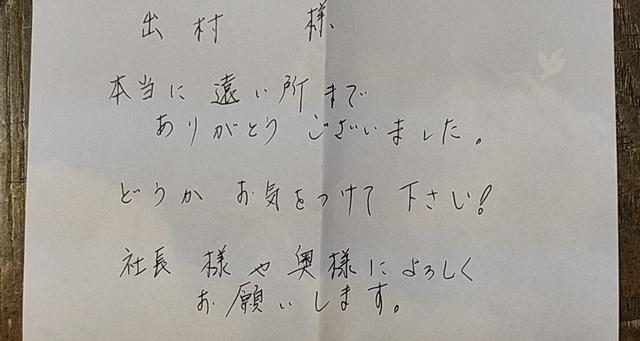 出村 様、
本当に 遠い所まで
ありがとう ございました。
どうか お気をつけて 下さい!
社長 様や奥様によろしく
お願いします。